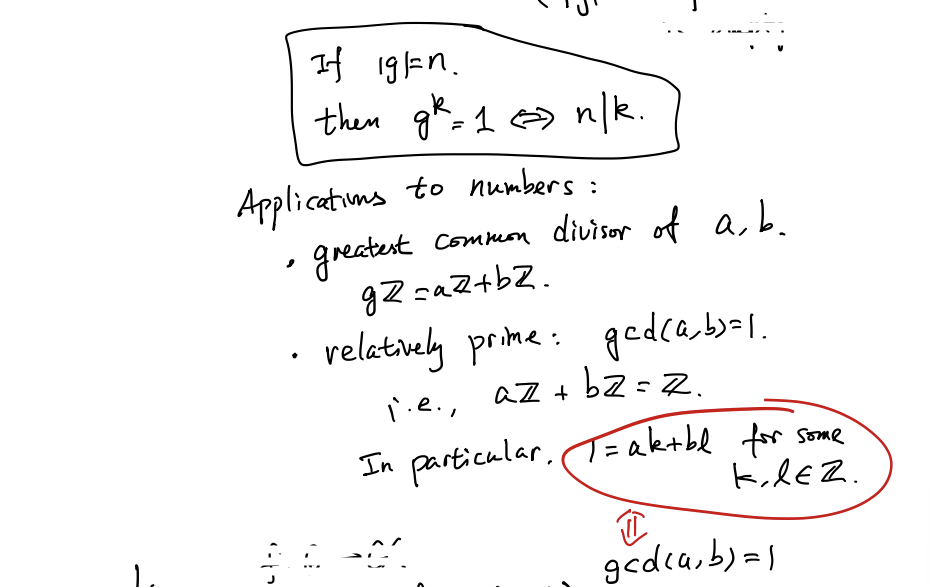 If |g|=n.
then g^k = 1 ⇔ n|k.
Applications to numbers:
• greatest common divisor of a, b.
gℤ = aℤ+bℤ.
• relatively prime: gcd(a,b)=1.
i.e., aℤ + bℤ = ℤ.
In particular. 1 = ak+bl for some
k, l ∈ ℤ.
⇕
gcd(a,b)=1